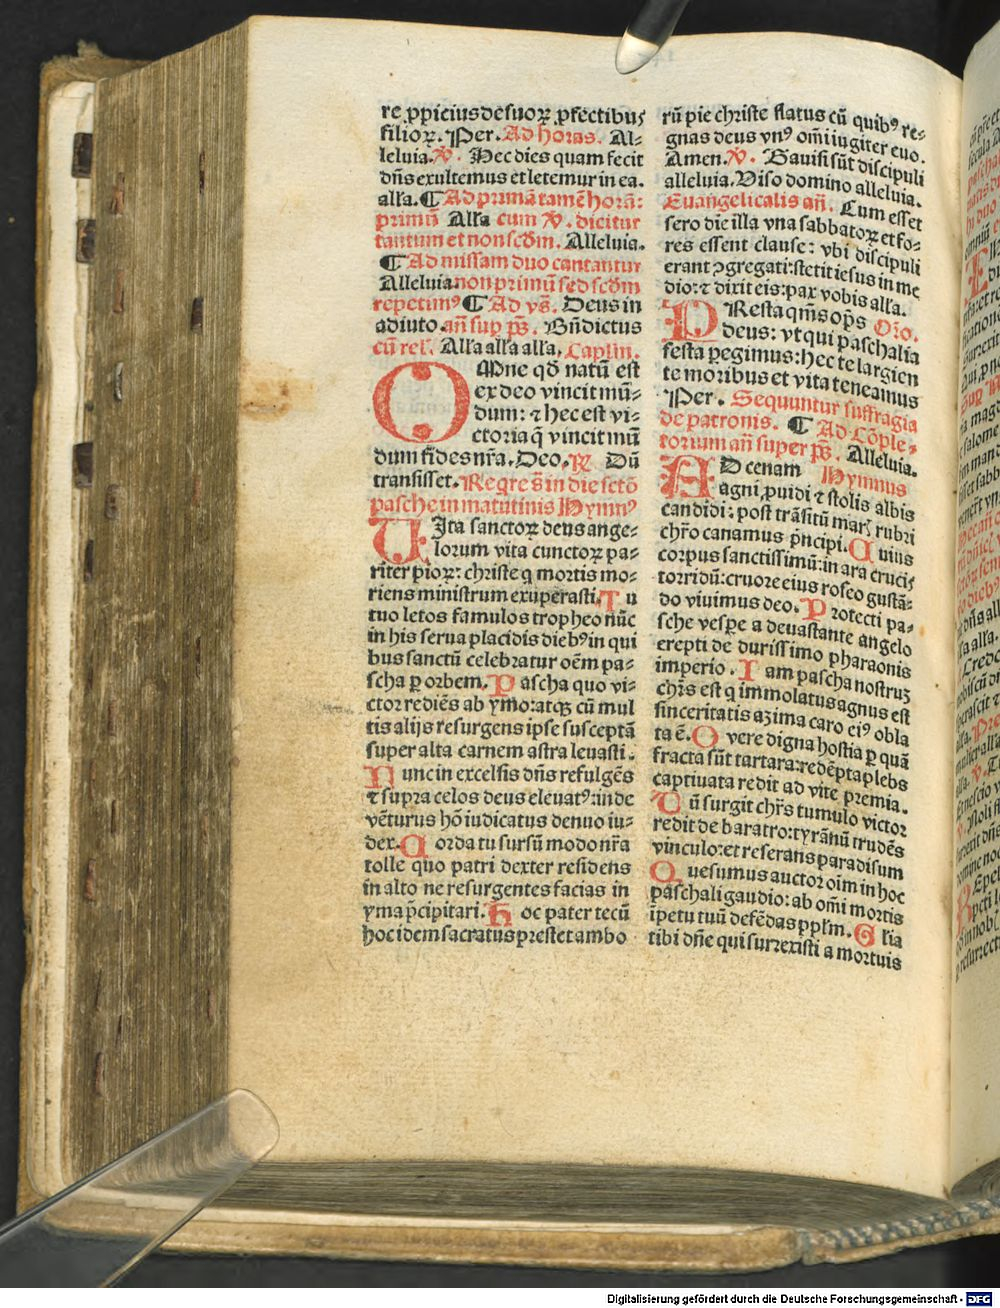 re ꝓpicius de suoꝝ ꝓfectibus
filioꝝ. Per. Ad horas. Al-
leluia. ℣. Hec dies quam fecit
dñs exultemus et letemur in ea.
alľa. ¶ Ad primã tamẽ horã:
primũ Alľa cum ℣. dicitur
tantum et non scďm. Alleluia.
¶ Ad missam duo cantantur
Alleluia. non primũ sed scďm
repetimꝰ ¶ Ad vs̃. Deus in
adiuto. añ sup p̃s. Bñdictus
cũ rel̃. Alľa alľa alľa, Caplm̃.
OMne qď natũ est
ex deo vincit mũ-
dum: ⁊ hec est vi-
ctoria q̃ vincit mũ
dum fides nr̃a. Deo. ℟ Dũ
transisset. Reqͥre s̃ in die sctõ
pasche in matutinis Hymnꝰ
VIta sanctoꝝ deus ange-
lorum vita cunctoꝝ pa-
riter pioꝝ: christe q mortis mo-
riens ministrum exuperasti. Tu
tuo letos famulos tropheo nũc
in his serua placidis diebꝰ in qui
bus sanctũ celebratur oẽm pa-
scha ꝑ orbem. Pascha quo vi-
ctor rediẽs ab ymo: atqꝫ cũ mul
tis alijs resurgens ipse susceptã
super alta carnem astra leuasti.
Nunc in excelsis dñs refulgẽs
⁊ supra celos deus eleuatꝰ: inde
vẽturus hõ iudicatus denuo iu-
dex. Corda tu sursũ modo nr̃a
tolle quo patri dexter residens
in alto ne resurgentes facias in
yma p̃cipitari. Hoc pater tecũ
hoc idem sacratus prestet ambo
rũ pie christe flatus cũ quibꝰ re-
gnas deus vnꝰ om̃i iugiter euo.
Amen. ℣. Gauisi sũt discipuli
alleluia. Viso domino alleluia.
Euangelicalis añ. Cum esset
sero die illa vna sabbatoꝝ et fo-
res essent clause: vbi discipuli
erant ꝯgregati: stetit iesus in me
dio: ⁊ dixit eis: pax vobis alľa.
PResta qm̃s op̃s Oro.
deus: vt qui paschalia
festa ꝑegimus: hec te largien
te moribus et vita teneamus
Per. Sequuntur suffragia
de patronis. ¶ Ad Cõple-
torium añ super p̃s. Alleluia.
AD cenam Hymnus
agni ꝓuidi ⁊ stolis albis
candidi: post trãsitũ marꝭ rubri
chr̃o canamus p̃ncipi. Cuius
corpus sanctissimũ: in ara crucis
torridũ: cruore eius roseo gustã-
do viuimus deo. Protecti pa-
sche vesꝑe a deuastante angelo
erepti de durissimo pharaonis
imperio. Iam pascha nostruꝫ
chr̃s est q immolatus agnus est
sinceritatis azima caro eiꝰ obla
ta ẽ. O vere digna hostia ꝑ quã
fracta sũt tartara: redẽpta plebs
captiuata redit ad vite premia.
Cũ surgit chr̃s tumulo victor
redit de baratro: tyrãnũ trudẽs
vinculo: et reserans paradisum
Quesumus auctor oĩm in hoc
paschali gaudio: ab om̃i mortis
ĩpetu tuũ defẽdas pplm̃. Glia
tibi dñe qui surrexisti a mortuis
Digitalisierung gefördert durch die Deutsche Forschungsgemeinschaft - DFG